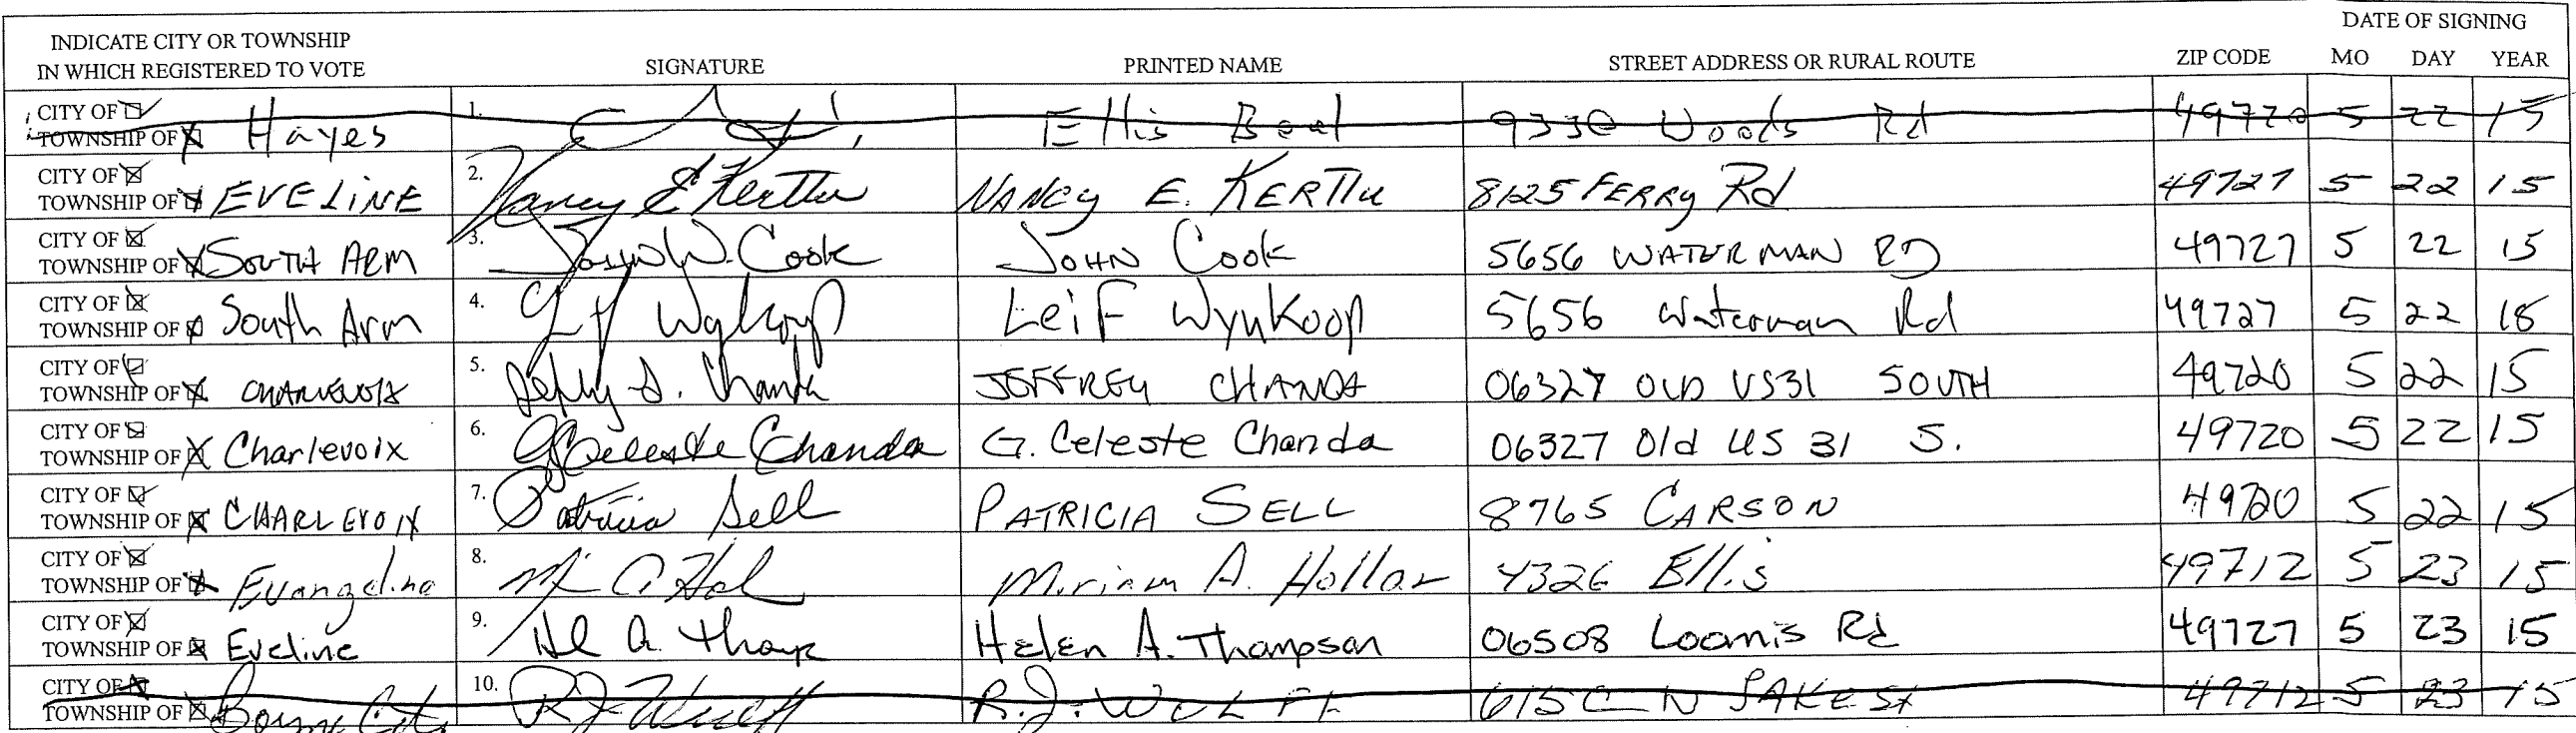 INDICATE CITY OR TOWNSHIP IN WHICH REGISTERED TO VOTE SIGNATURE PRINTED NAME STREET ADDRESS OR RURAL ROUTE ZIP CODE DATE OF SIGNING MO DAY YEAR
CITY OF
TOWNSHIP OF Hayes 1. Ellis Boal 9330 Woods Rd 49720 5 22 15
CITY OF
TOWNSHIP OF EVELINE 2. Nancy E Kerttu NANCY E. KERTTU 8125 FERRY Rd 49727 5 22 15
CITY OF
TOWNSHIP OF SOUTH ARM 3. John W. Cook JOHN COOK 5656 WATERMAN RD 49727 5 22 15
CITY OF
TOWNSHIP OF South Arm 4. Leif Wynkoop 5656 Waterman Rd 49727 5 22 15
CITY OF
TOWNSHIP OF CHARLEVOIX 5. JEFFREY CHANDA 06327 OLD US31 SOUTH 49720 5 22 15
CITY OF
TOWNSHIP OF Charlevoix 6. G Celeste Chanda G. Celeste Chanda 06327 Old US 31 S. 49720 5 22 15
CITY OF
TOWNSHIP OF CHARLEVOIX 7. Patricia Sell PATRICIA SELL 8765 CARSON 49720 5 22 15
CITY OF
TOWNSHIP OF Evangeline 8. Miriam A. Hollar 4326 Ellis 49712 5 23 15
CITY OF
TOWNSHIP OF Eveline 9. Helen A. Thompson 06508 Loomis Rd 49727 5 23 15
CITY OF
TOWNSHIP OF Boyne City 10. R.J. WULFF 615 C N LAKE St 49712 5 23 15